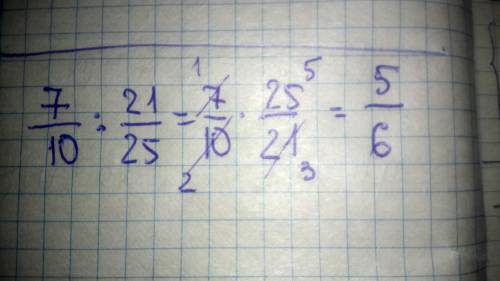 7/10 : 21/25 = 1 7/10 2 · 25 5/21 3 = 5/6